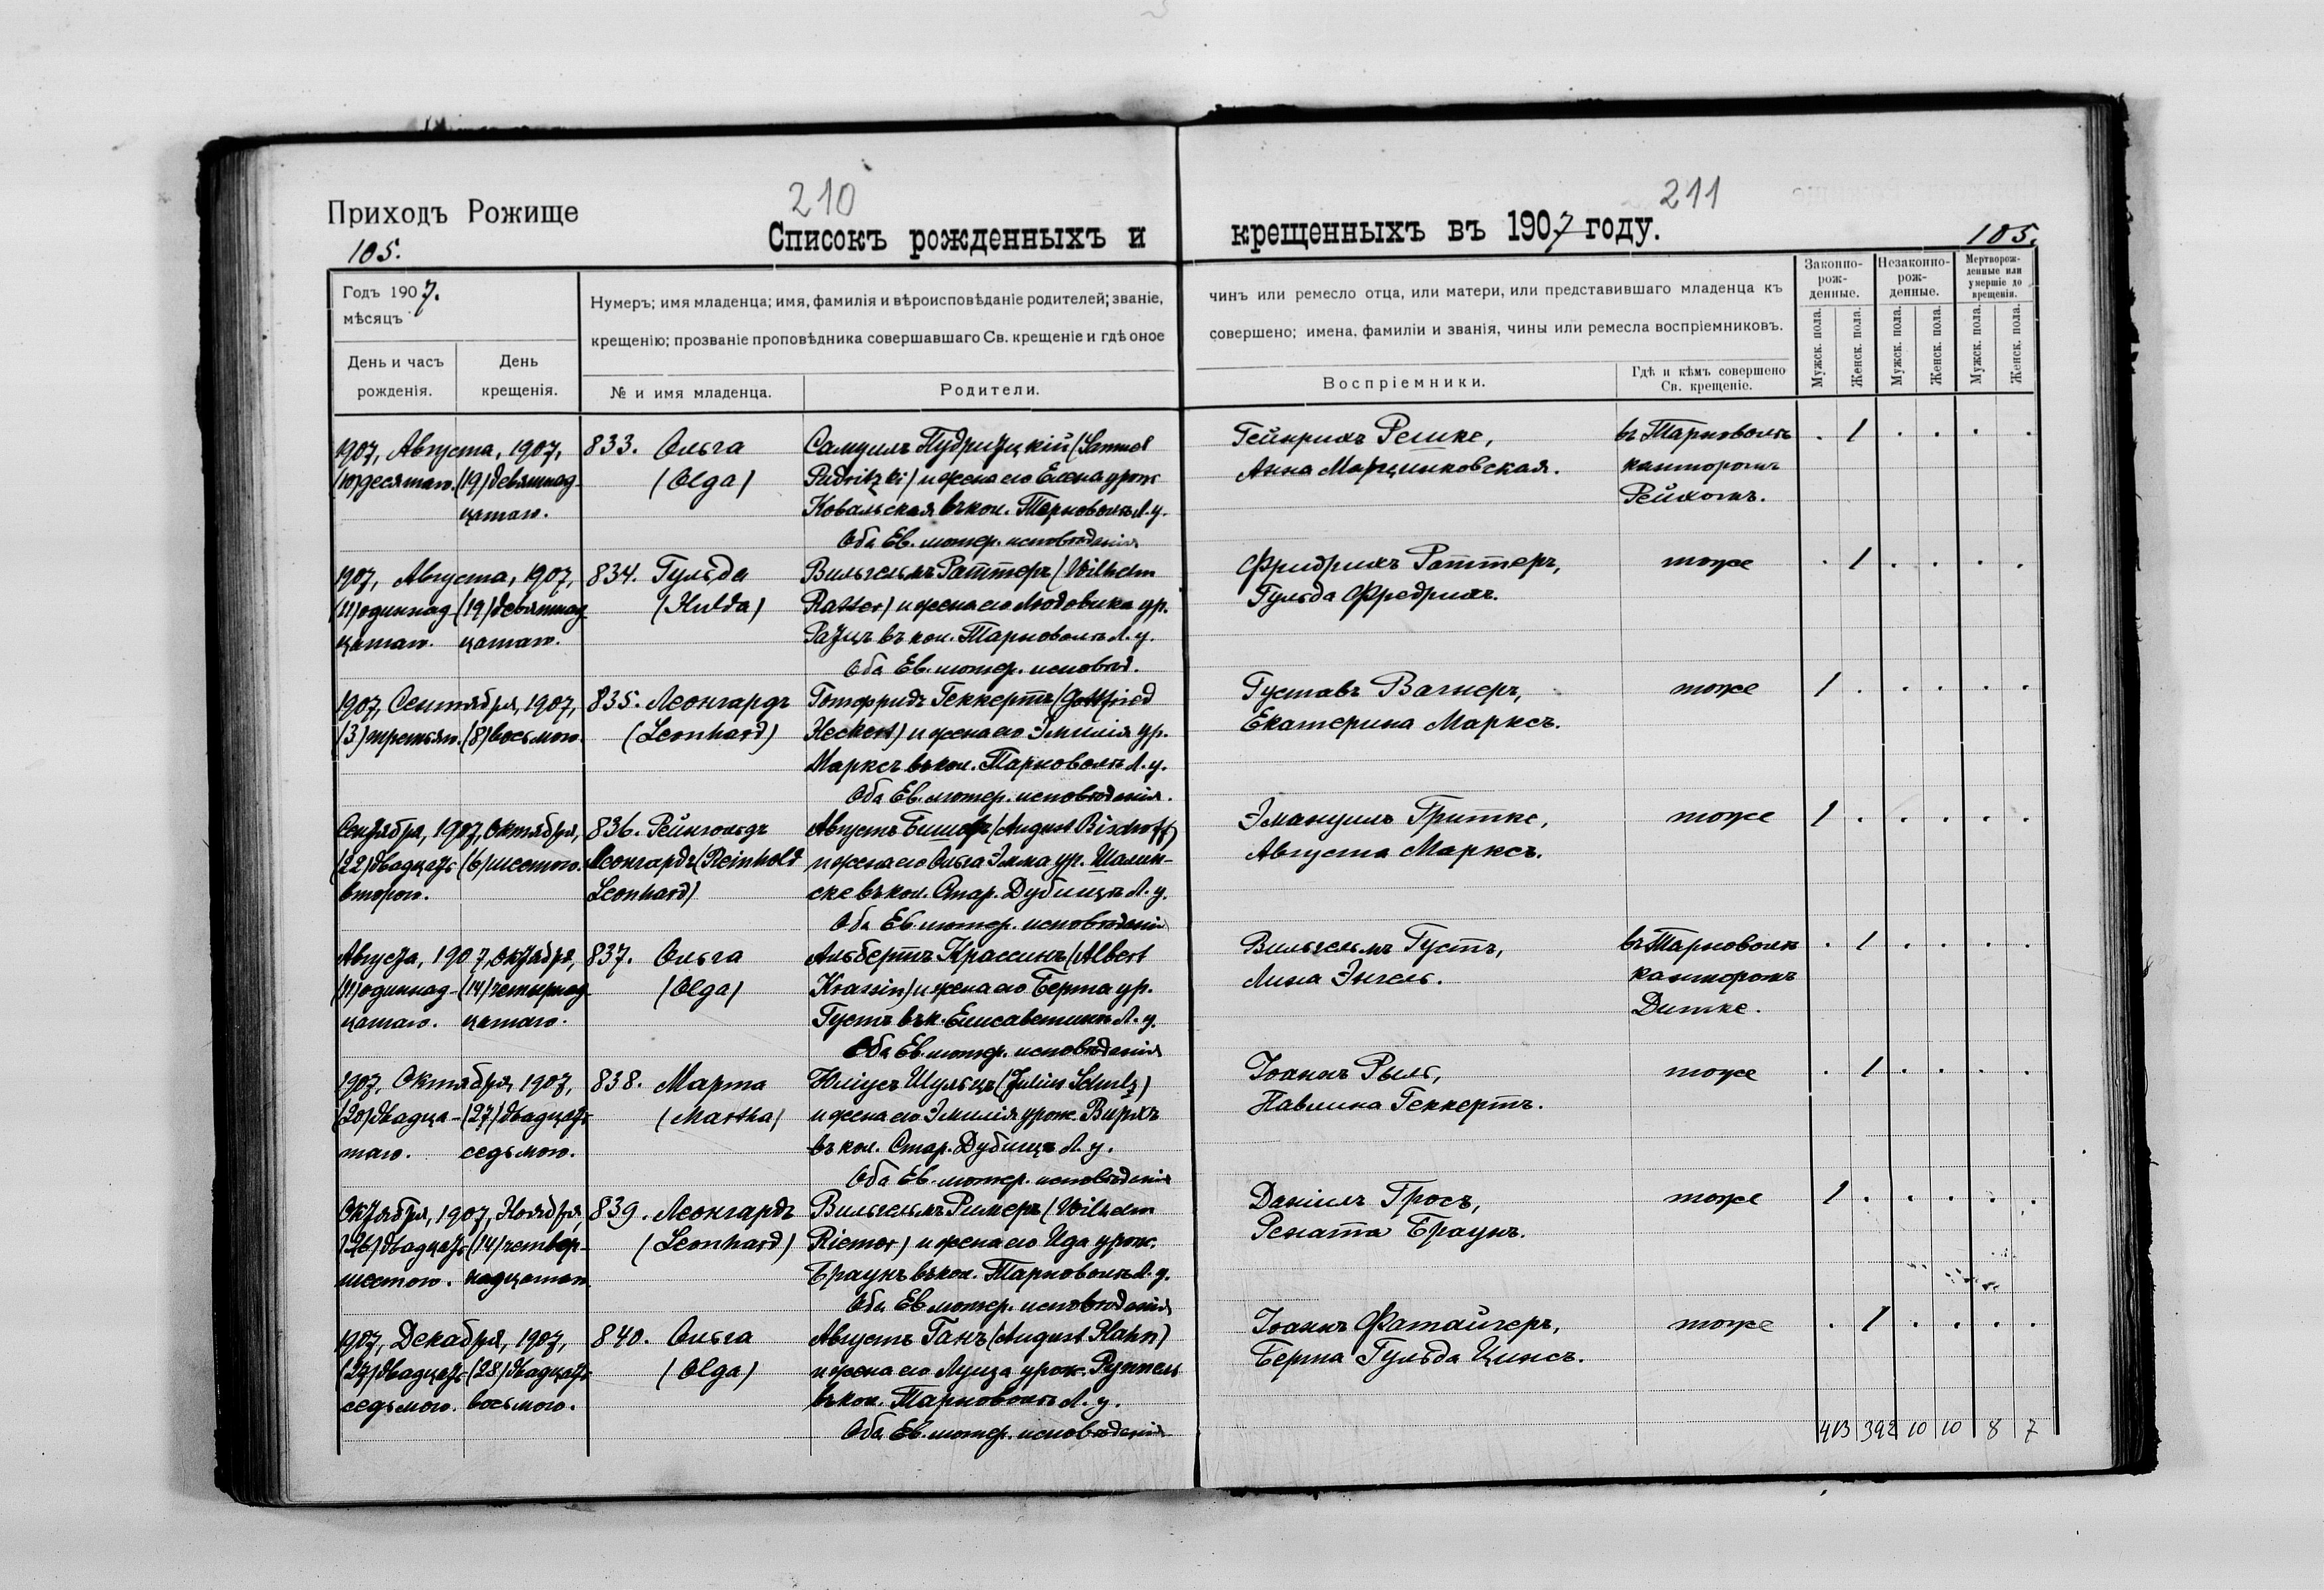 210
211
Приходъ Рожище
Списокъ рожденныхъ и крещенныхъ въ 1907 году.
105.
105.
Годъ 1907.
мѣсяцъ
День и часъ рожденія.
День крещенія.
Нумеръ; имя младенца; имя, фамилія и вѣроисповѣданіе родителей; званіе,
крещенію; прозваніе проповѣдника совершавшаго Св. крещеніе и гдѣ оное
№ и имя младенца.
Родители.
чинъ или ремесло отца, или матери, или представившаго младенца къ
совершено; имена, фамиліи и званія, чины или ремесла воспріемниковъ.
Воспріемники.
Гдѣ и кѣмъ совершено
Св. крещеніе.
Законно-
рож-
денные.
Незаконно-
рож-
денные.
Мертворож-
денные или
умершіе до
крещенія.
Мужск. пола.
Женск. пола.
Мужск. пола.
Женск. пола.
Мужск. пола.
Женск. пола.
1907, Августа, 1907,
(10) десятаго. (19) девятнад-
цатаго.
833. Ольга
(Olga)
Самуилъ Пудрицкій (Samuel
Pudritzki) и жена его Елена урож.
Ковальская въ кол. Тарноволя Л. у.
Оба Ев. лютер. исповѣданія
Гейнрихъ Решке,
Анна Марцинковская.
въ Тарноволѣ
канторомъ
Рейхомъ.
. 1 . . . .
1907, Августа, 1907,
(11) одиннад- (19) девятнад-
цатаго. цатаго.
834. Гульда
(Hulda)
Вильгельмъ Раттеръ (Wilhelm
Ratter) и жена его Людовика ур.
Рацъ въ кол. Тарноволя Л. у.
Оба Ев. лютер. исповѣд.
Фридрихъ Раттеръ,
Гульда Фредрихъ.
тоже
. 1 . . . .
1907, Сентября, 1907,
(3) третьяго. (8) восьмого.
835. Леонгардъ
(Leonhard)
Готфридъ Геккертъ (Gottfried
Heckert) и жена его Эмилія ур.
Марксъ въ кол. Тарноволя Л. у.
Оба Ев. лютер. исповѣданія.
Густавъ Вагнеръ,
Екатерина Марксъ.
тоже
1 . . . . .
Сентября, 1907, Октября,
(22) двадцать (6) шестого.
второго.
836. Рейнгольдъ
Леонгардъ (Reinhold
Leonhard)
Августъ Бишофъ (August Bischoff)
и жена его Ольга Эмма ур. Шалин-
ске въ кол. Стар. Дубище Л. у.
Оба Ев. лютер. исповѣданія
Эмануилъ Гритке,
Августа Марксъ.
тоже
1 . . . . .
Августа, 1907, Октября,
(11) одиннад- (14) четырнад-
цатаго. цатаго.
837. Ольга
(Olga)
Альбертъ Крассинъ (Albert
Krassin) и жена его Берта ур.
Густъ въ к. Елисаветинѣ Л. у.
Оба Ев. лютер. исповѣданія
Вильгельмъ Густъ,
Лина Энгель.
въ Тарноволѣ
канторомъ
Дитке.
. 1 . . . .
1907, Октября, 1907,
(20) двадца- (27) двадцать
таго. седьмого.
838. Марта
(Martha)
Юліусъ Шульцъ (Julius Schulz)
и жена его Эмилія урож. Вирхъ
въ кол. Стар. Дубище Л. у.
Оба Ев. лютер. исповѣданія
Іоаннъ Рыль,
Павлина Геккертъ.
тоже
. 1 . . . .
Октября, 1907, Ноября,
(26) двадцать (14) четвер-
шестого. надцатаго.
839. Леонгардъ
(Leonhard)
Вильгельмъ Римеръ (Wilhelm
Riemer) и жена его Ида урож.
Браунъ въ кол. Тарноволя Л. у.
Оба Ев. лютер. исповѣданія
Даніилъ Гросъ,
Рената Браунъ.
тоже
1 . . . . .
1907, Декабря, 1907,
(27) двадцать (28) двадцать
седьмого. восьмого.
840. Ольга
(Olga)
Августъ Ганъ (August Hahn)
и жена его Луиза урож. Руппель
въ кол. Тарноволя Л. у.
Оба Ев. лютер. исповѣданія
Іоаннъ Фатайгеръ,
Берта Гульда Цинсъ.
тоже
. 1 . . . .
413 392 10 10 8 7